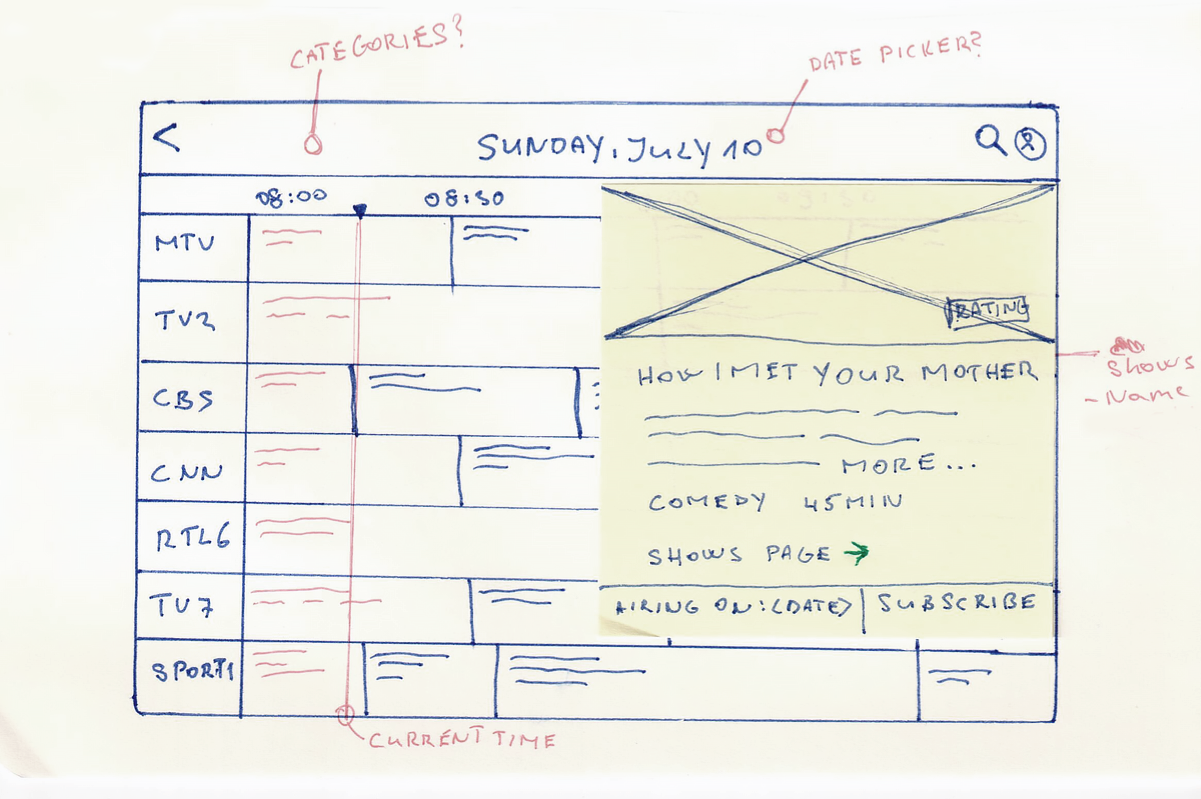 CATEGORIES?
DATE PICKER?
<
SUNDAY, JULY 10
08:00
08:30
MTV
TV2
CBS
CNN
RTL6
TV7
SPORT1
RATING
HOW I MET YOUR MOTHER
MORE...
COMEDY 45MIN
SHOWS PAGE →
AIRING ON: (DATE)
SUBSCRIBE
Shows
- Name
CURRENT TIME